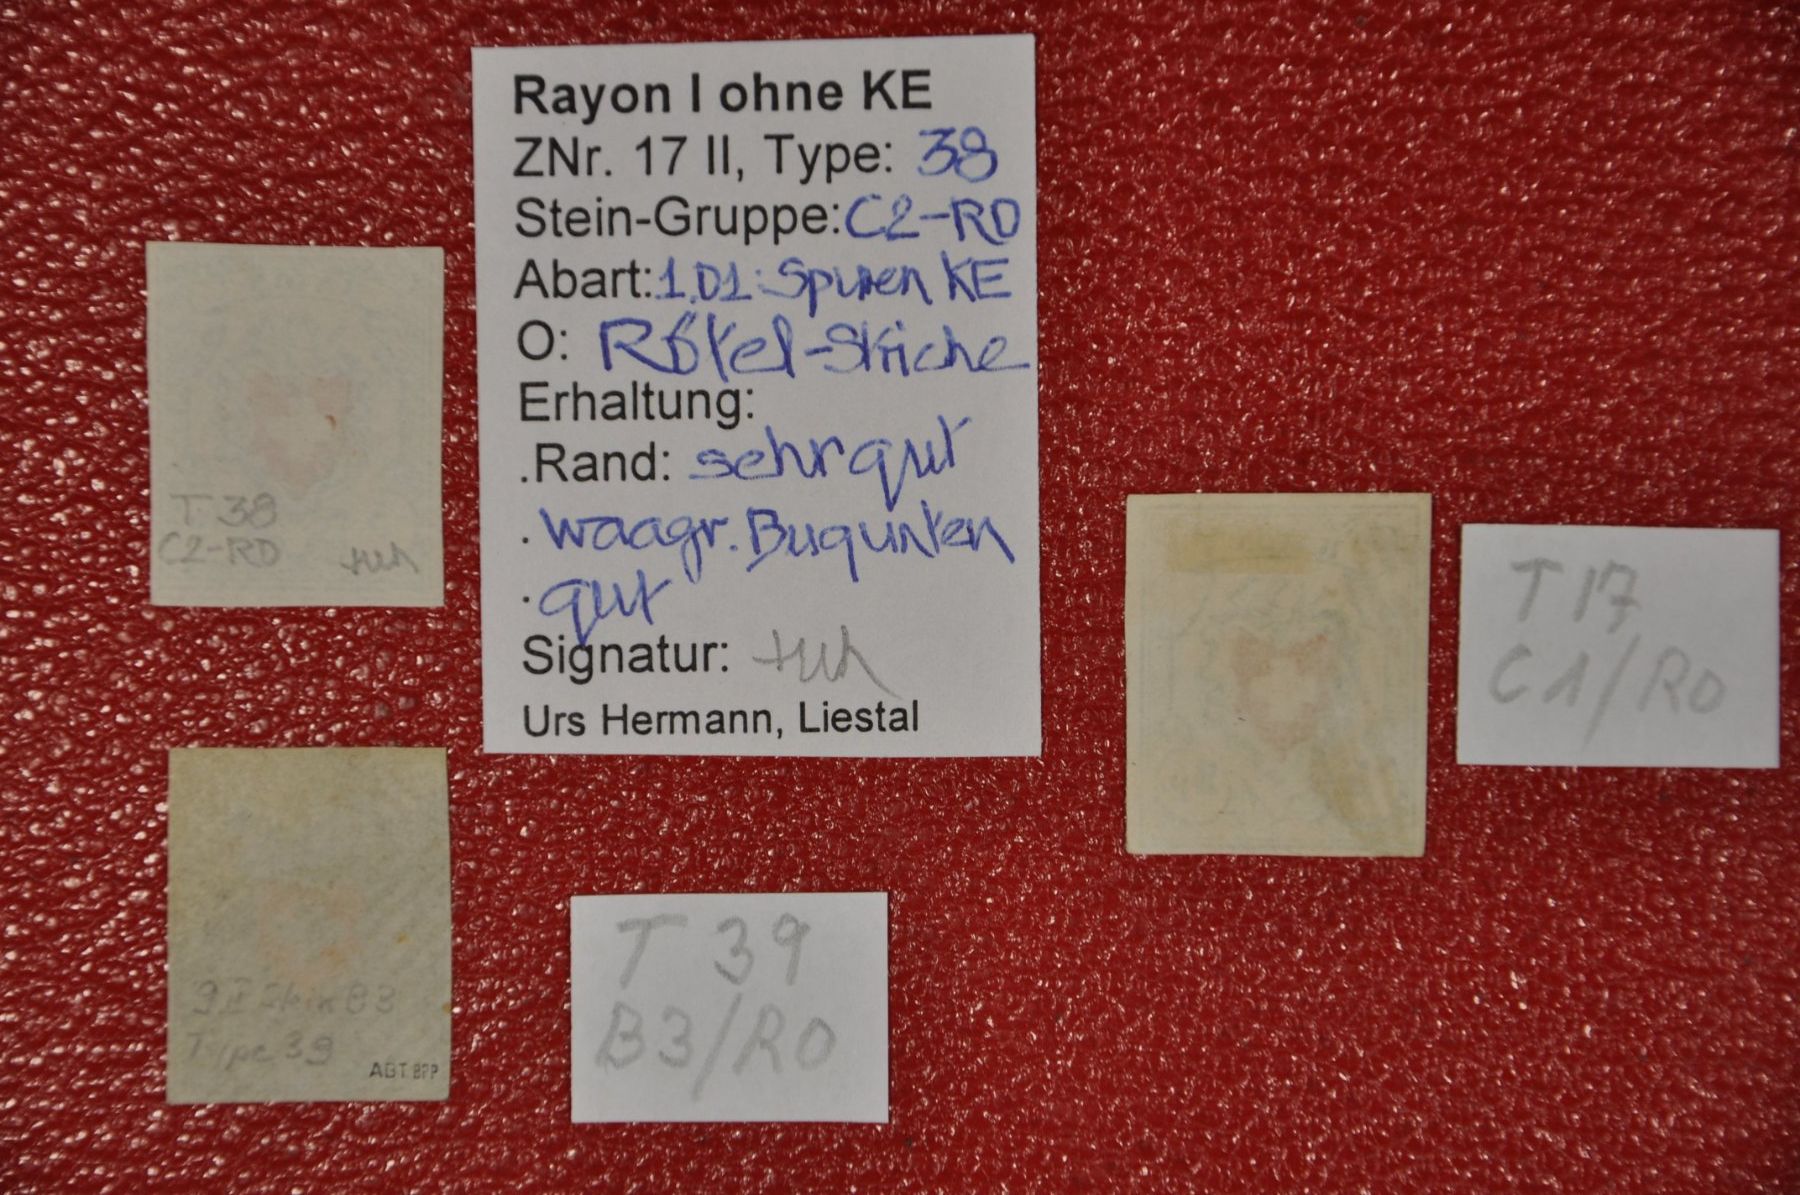 Rayon I ohne KE
ZNr. 17 II, Type: 38
Stein-Gruppe: C2-RO
Abart: 1.01: Spuren KE
O: Rötel-Striche
Erhaltung:
.Rand: sehr gut
. waagr. Bug unten
. gut
Signatur:
Urs Hermann, Liestal
T 38
C2-RO
T 17
C1/RO
9 II Stein B3
Type 39
ABT BPP
T 39
B3/RO